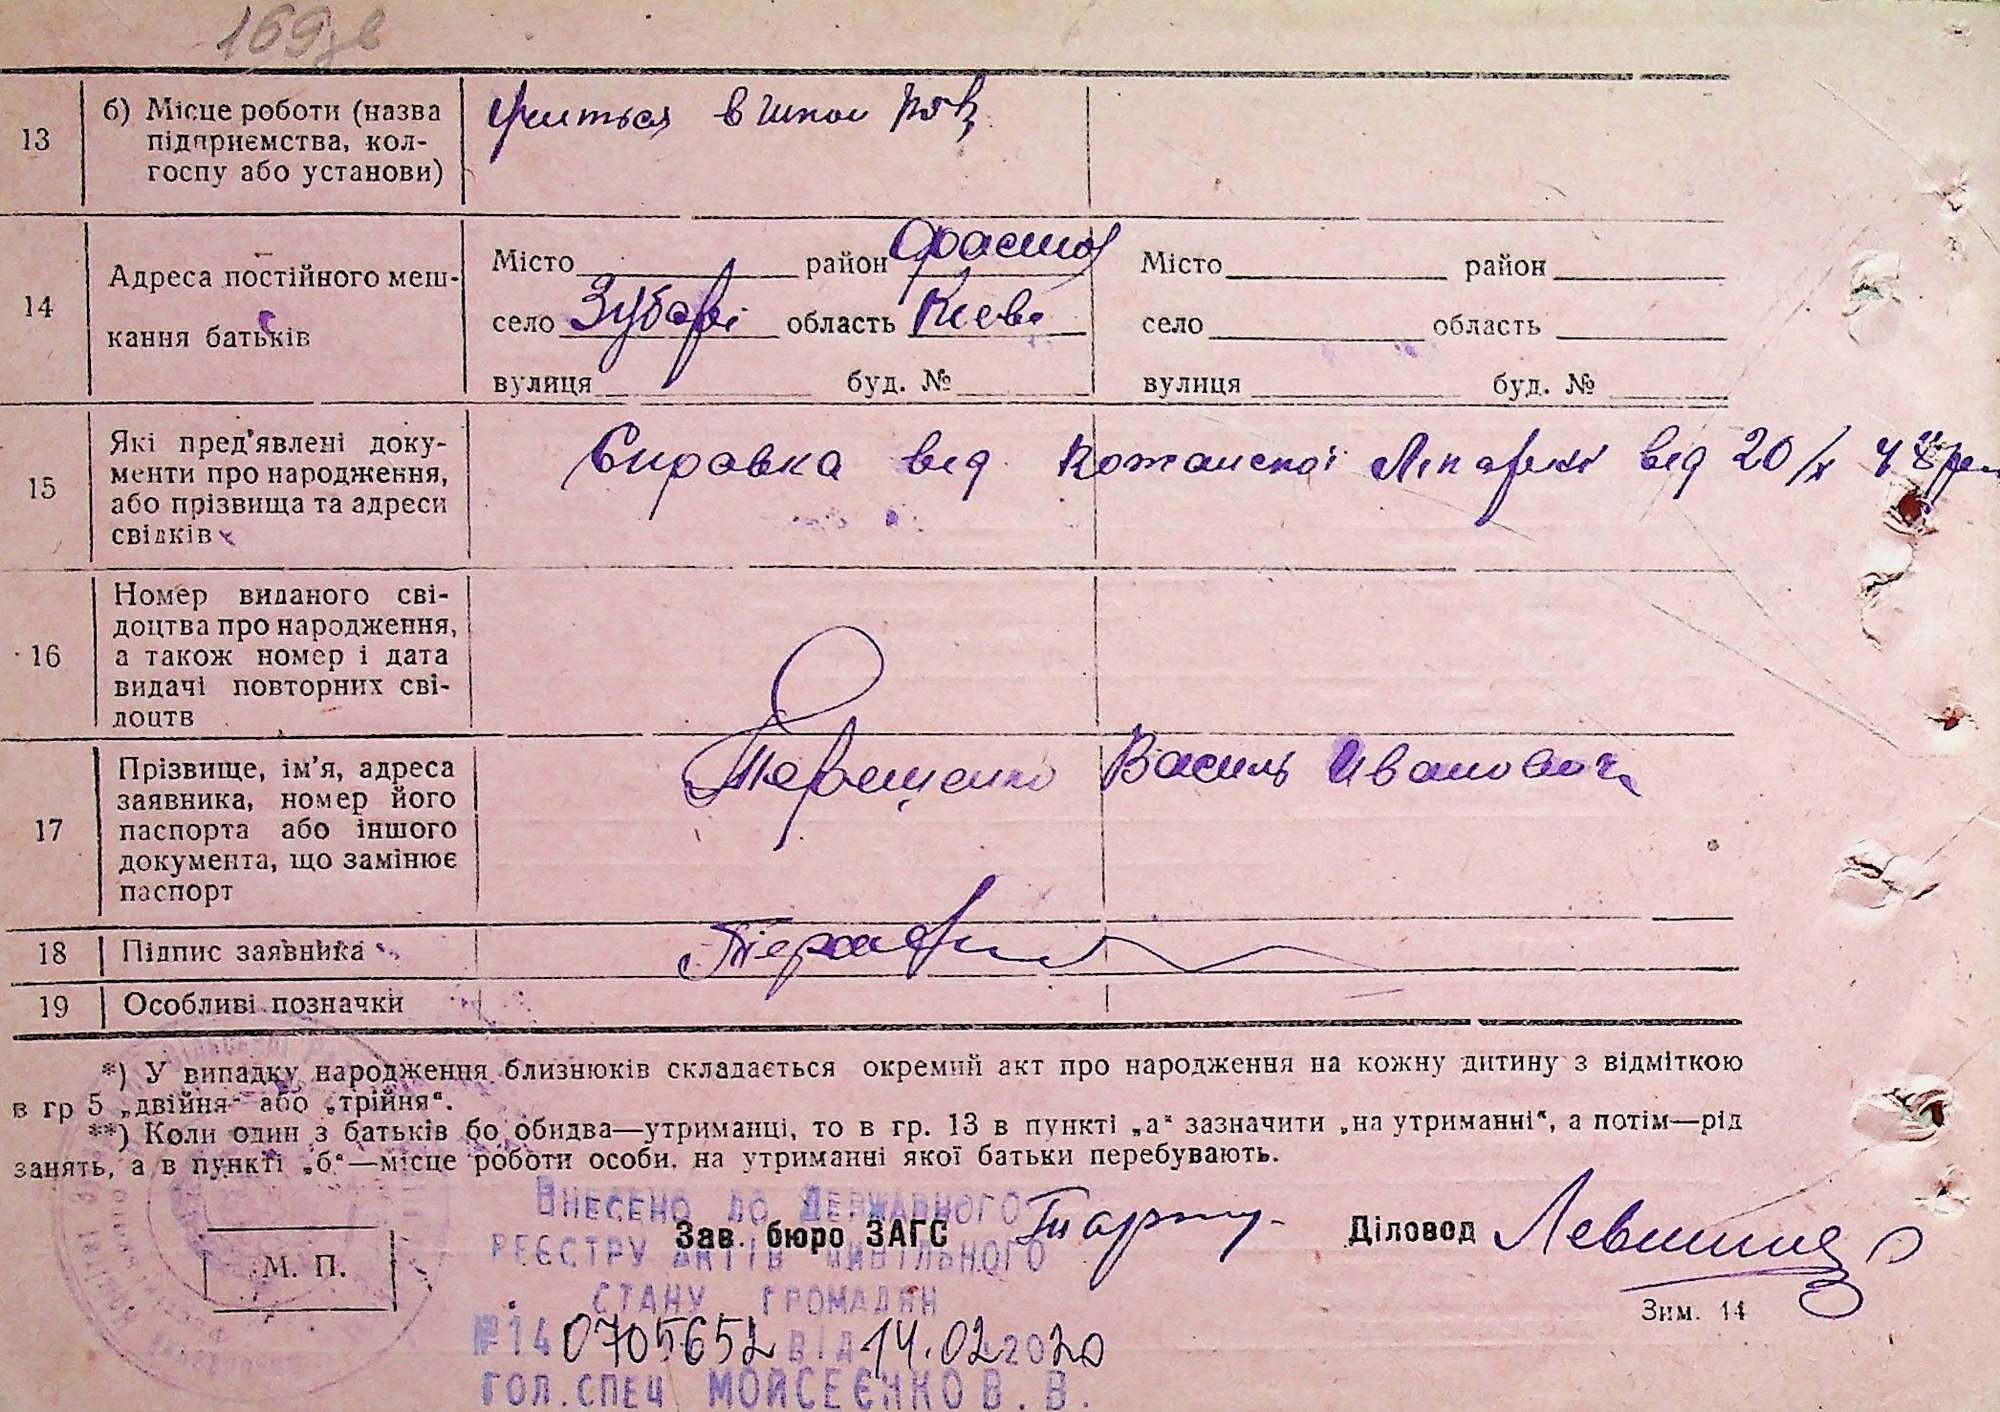 169 зв
13
б) Місце роботи (назва
підприємства, кол-
госпу або установи)
учиться в школі
14
Адреса постійного меш-
кання батьків
Місто район Фастов
село Зубарі область Київ
вулиця буд. №
Місто район
село область
вулиця буд. №
15
Які пред'явлені доку-
менти про народження,
або прізвища та адреси
свідків
Справка від Кожанської Лікарні від 20/X 48р
16
Номер виданого сві-
доцтва про народження,
а також номер і дата
видачі повторних сві-
доцтв
17
Прізвище, ім'я, адреса
заявника, номер його
паспорта або іншого
документа, що замінює
паспорт
Терещенко Василь Иванович
18
Підпис заявника
19
Особливі позначки
*) У випадку народження близнюків складається окремий акт про народження на кожну дитину з відміткою
в гр 5 „двійня“ або „трійня“.
**) Коли один з батьків бо обидва—утриманці, то в гр. 13 в пункті „а“ зазначити „на утриманні“, а потім—рід
занять, а в пункті „б“—місце роботи особи, на утриманні якої батьки перебувають.
М. П.
Зав. бюро ЗАГС
Діловод
Зим. 14
ВНЕСЕНО ДО ДЕРЖАВНОГО
РЕЄСТРУ АКТІВ ЦИВІЛЬНОГО
СТАНУ ГРОМАДЯН
№140705652 ВІД 14.02.2020
ГОЛ.СПЕЦ МОЙСЕЄНКО В. В.